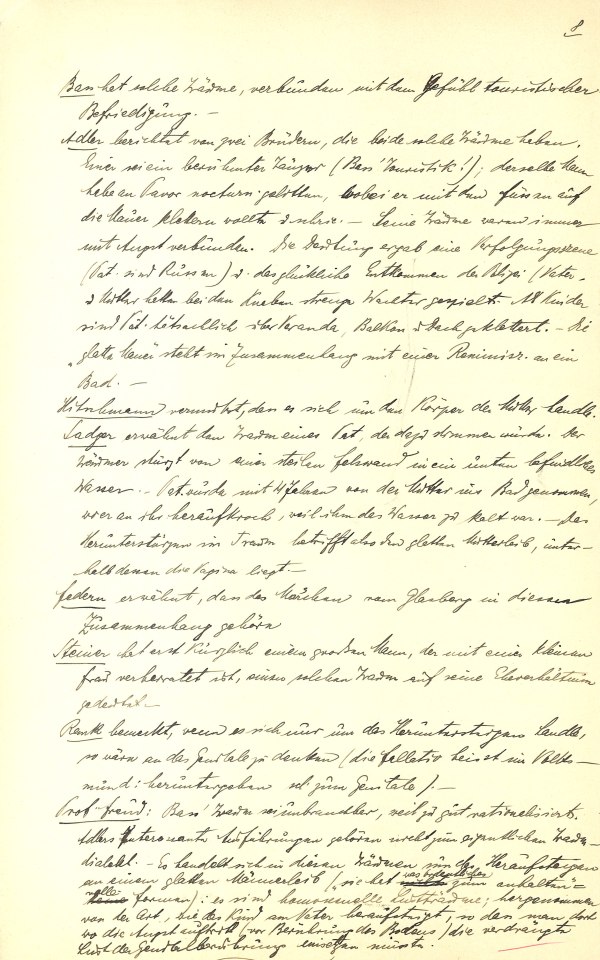 8
Bass hat solche Träume, verbunden mit dem Gefühl touristischer
Befriedigung. —
Adler berichtet von zwei Brüdern, die beide solche Träume haben.
Einer sei ein berühmter Sänger (Bass' Touristik!); derselbe Mann
habe an Pavor nocturn. gelitten, wobei er mit den Füssen auf
die Mauer klettern wollte u. schrie. — Seine Träume waren immer
mit Angst verbunden. Die Deutung ergab eine Verfolgungsszene
(Pat. sind Russen) u. das glückliche Entkommen der Polizei (Vater
u. Mutter hatten bei den Knaben strenge Wächter gespielt. Als Kinder
sind Pat. tatsächlich über Veranda, Balkon u. Dach geklettert. — Die
„glatte Mauer steht im Zusammenhang mit einer Reminisz. an ein
Bad. —
Hitschmann vermutet, dass es sich um den Körper der Mutter handle.
Sadger erwähnt den Traum eines Pat., der dazu stimmen würde. Der
Träumer stürzt von einer steilen Felswand in ein unten befindliches
Wasser. — Pat. wurde mit 4 Jahren von der Mutter ins Bad genommen,
wo er an ihr heraufkroch, weil ihm das Wasser zu kalt war. — Das
Herunterstürzen im Traum betrifft also den glatten Mutterleib, unter-
halb dessen die Vagina liegt —
Federn erwähnt, dass das Märchen vom Glasberg in diesen
Zusammenhang gehöre
Steiner hat erst kürzlich einem grossen Mann, der mit einer kleinen
Frau verheiratet ist, einen solchen Traum auf seine Eheverhältnisse
gedeutet —
Rank bemerkt, wenn es sich nur um das Heruntersteigen handle,
so wäre an das Genitale zu denken (die Fellatio heisst im Volks-
mund: heruntergehen scl. zum Genitale). —
Prof. Freud: Bass' Traum sei unbrauchbar, weil zu gut rationalisiert.
Adlers interessante Ausführungen gehören nicht zum eigentlichen Traum-
dialekt. — Es handelt sich in diesen Träumen um das Heraufsteigen
an einem glatten Männerleib („sie hat was ordentliches zum anhalten" =
volle Formen): es sind homosexuelle Lustträume; hergenommen
von der Art, wie das Kind am Vater heraufsteigt, so dass man dort
wo die Angst auftritt (vor Berührung des Bodens) die verdrängte
Lust der Genitalberührung einsetzen müsste.